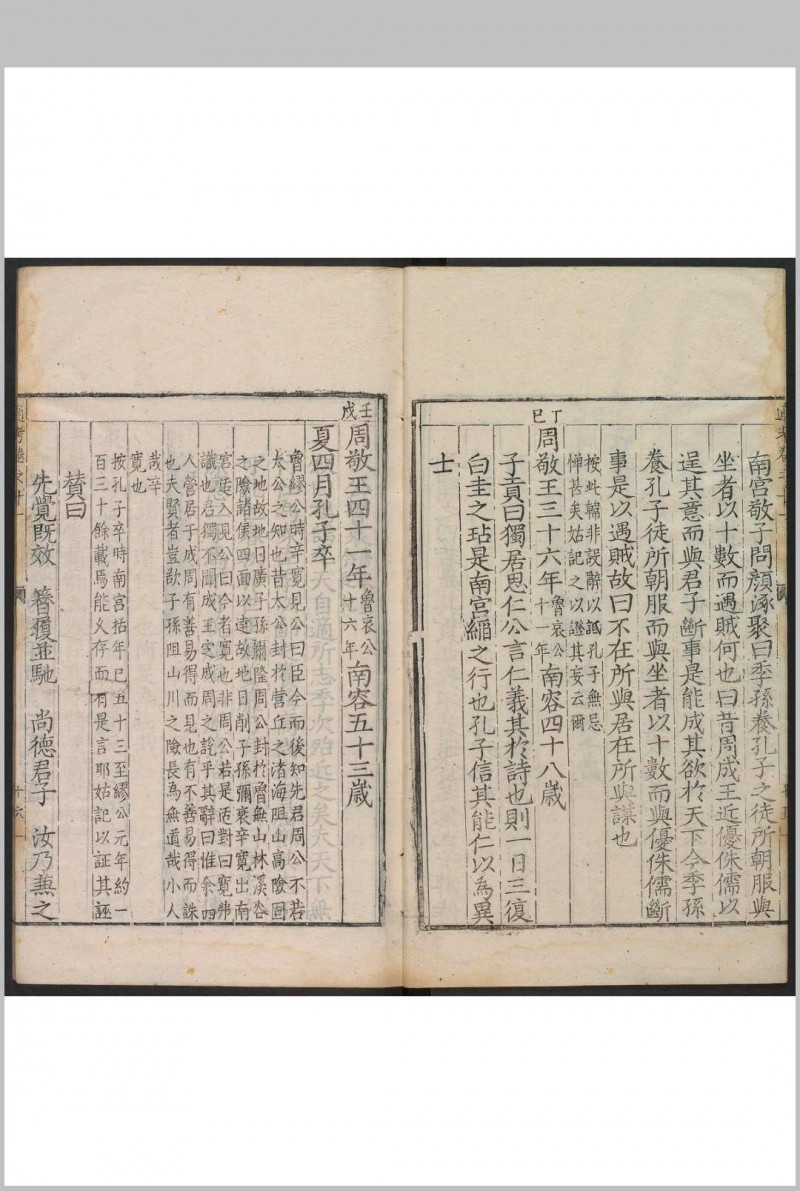 南宮敬子問顏涿聚曰季孫養孔子之徒所朝服與
坐者以十數而遇賊何也曰昔周成王近優侏儒以
逞其意而與君子斷事是能成其欲於天下今季孫
養孔子徒所朝服而與坐者以十數而與優侏儒斷
事是以遇賊故曰不在所與居在所與謀也
按此輯非設辭以詆孔子無忌
憚甚矣姑記之以證其妄云爾
丁巳
周敬王三十六年魯哀公十一年南容四十八歲
子貢曰獨居思仁公言仁義其於詩也則一日三復
白圭之玷是南宮縚之行也孔子信其能仁以為異
士
壬戌
周敬王四十一年魯哀公十六年南容五十三歲
夏四月孔子卒
魯繆公時辛寬見公曰臣今而後知先君周公不若
太公之知也昔太公封於營丘之渚海阻山高險固
之地故地日廣子孫彌隆周公封於魯無山林溪谷
之險諸侯四面以達故地日削子孫彌衰辛寬出南
宮适入見公曰今者寬也非周公若是适對曰寬弗
識也君獨不聞成王定成周之說乎其辭曰惟余一
人營居于成周有善易得而見也有不善易得而誅
也夫賢者豈欲子孫阻山川之險長為無道哉小人
哉辛
寬也
按孔子卒時南宮括年已五十三至繆公元年約一
百三十餘載焉能久存而有是言耶姑記以証其誣
贊曰
先覺既效 簪獲並馳 尚德君子 汝乃兼之
十六